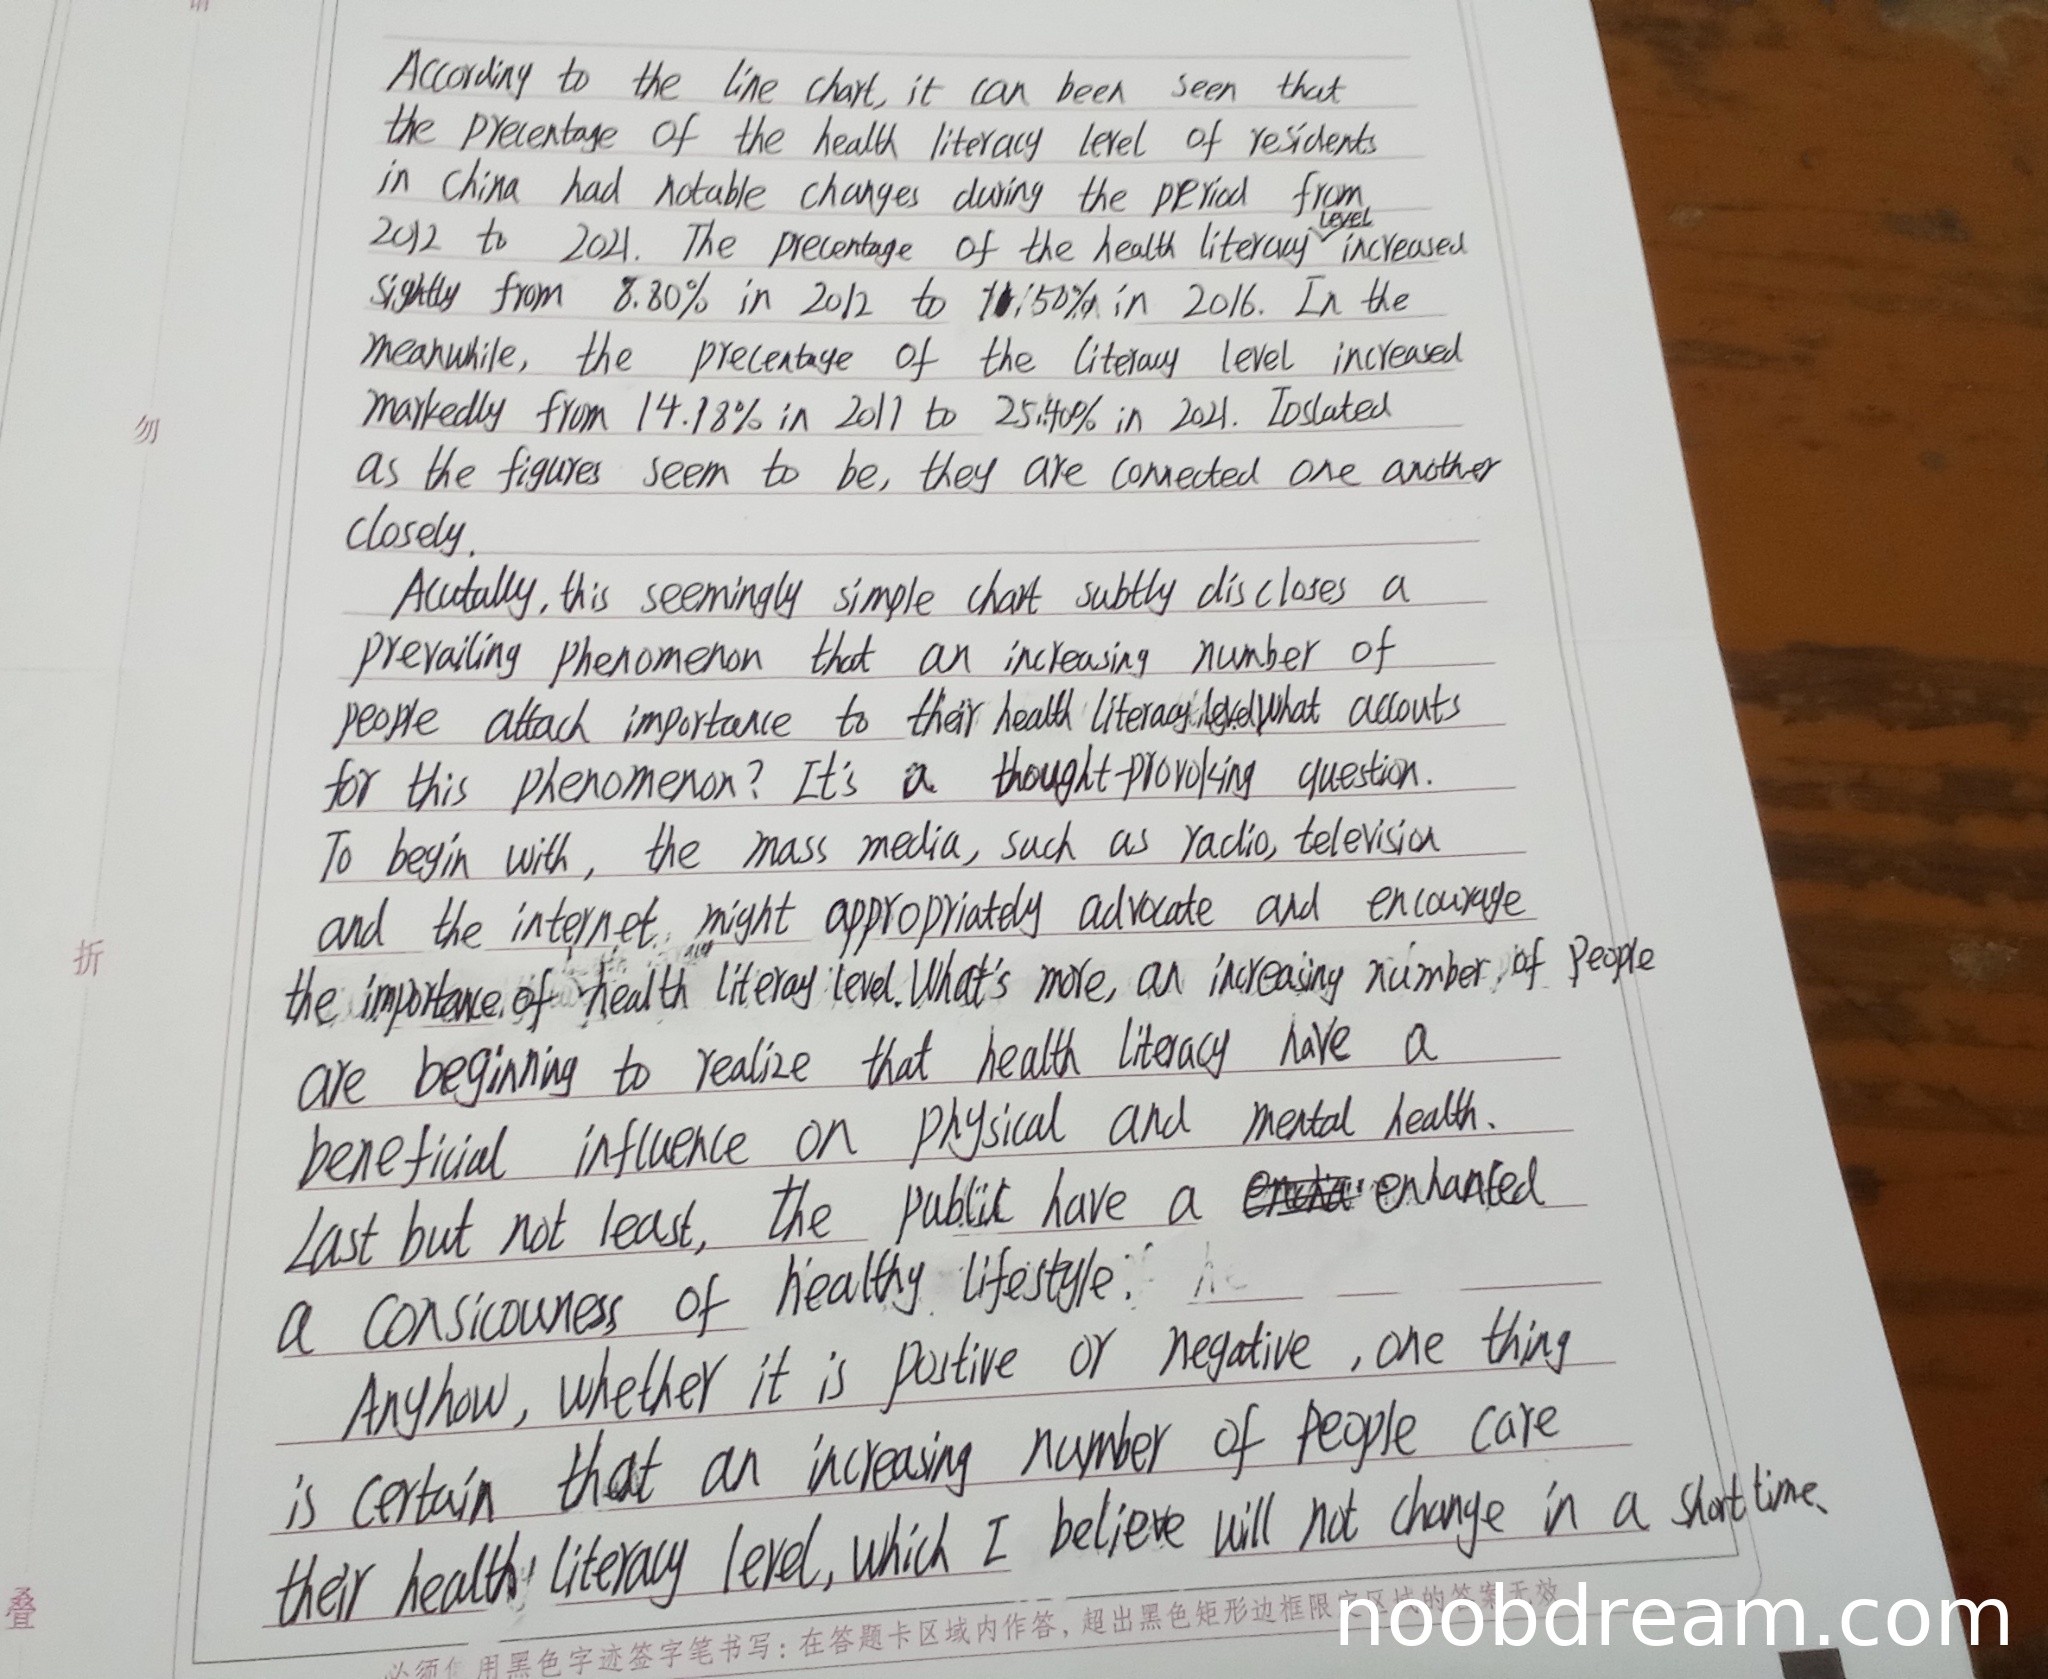 According to the line chart, it can been seen that
the precentage of the health literacy level of residents
in China had notable changes during the period from
2012 to 2021. The precentage of the health literacy level increased
sightly from 8.80% in 2012 to 11.50% in 2016. In the
meanwhile, the precentage of the literacy level increased
markedly from 14.18% in 2017 to 25.40% in 2021. Ioslated
as the figures seem to be, they are connected one another
closely.
Acutally, this seemingly simple chart subtly discloses a
prevailing phenomenon that an increasing number of
people attach importance to their health literacy level. What accouts
for this phenomenon? It's a thought-provoking question.
To begin with, the mass media, such as radio, television
and the internet, might appropriately advocate and encourage
the importance of health literay level. What's more, an increasing number of people
are beginning to realize that health literacy have a
beneficial influence on physical and mental health.
Last but not least, the public have a enhanced
a consicouness of healthy lifestyle.
Anyhow, whether it is postive or negative, one thing
is certain that an increasing number of people care
their health literacy level, which I believe will not change in a short time.
用黑色字迹签字笔书写：在答题卡区域内作答，超出黑色矩形边框限定区域的答案无效
勿
折
叠
noobdream.com